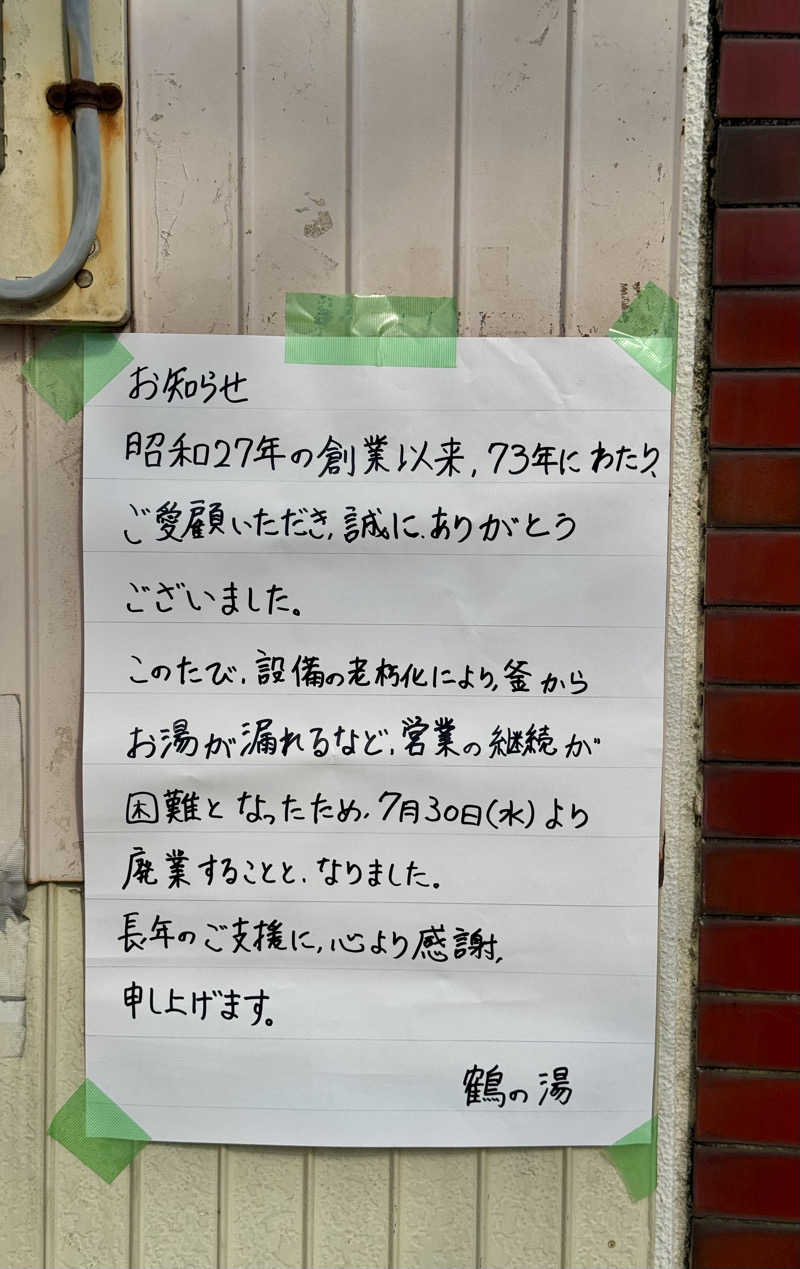 お知らせ
昭和27年の創業以来,73年にわたり、
ご愛顧いただき,誠に、ありがとう
ございました。
このたび、設備の老朽化により,釜から
お湯が漏れるなど、営業の継続が
困難となったため、7月30日(水)より
廃業することと、なりました。
長年のご支援に,心より感謝,
申し上げます。
鶴の湯